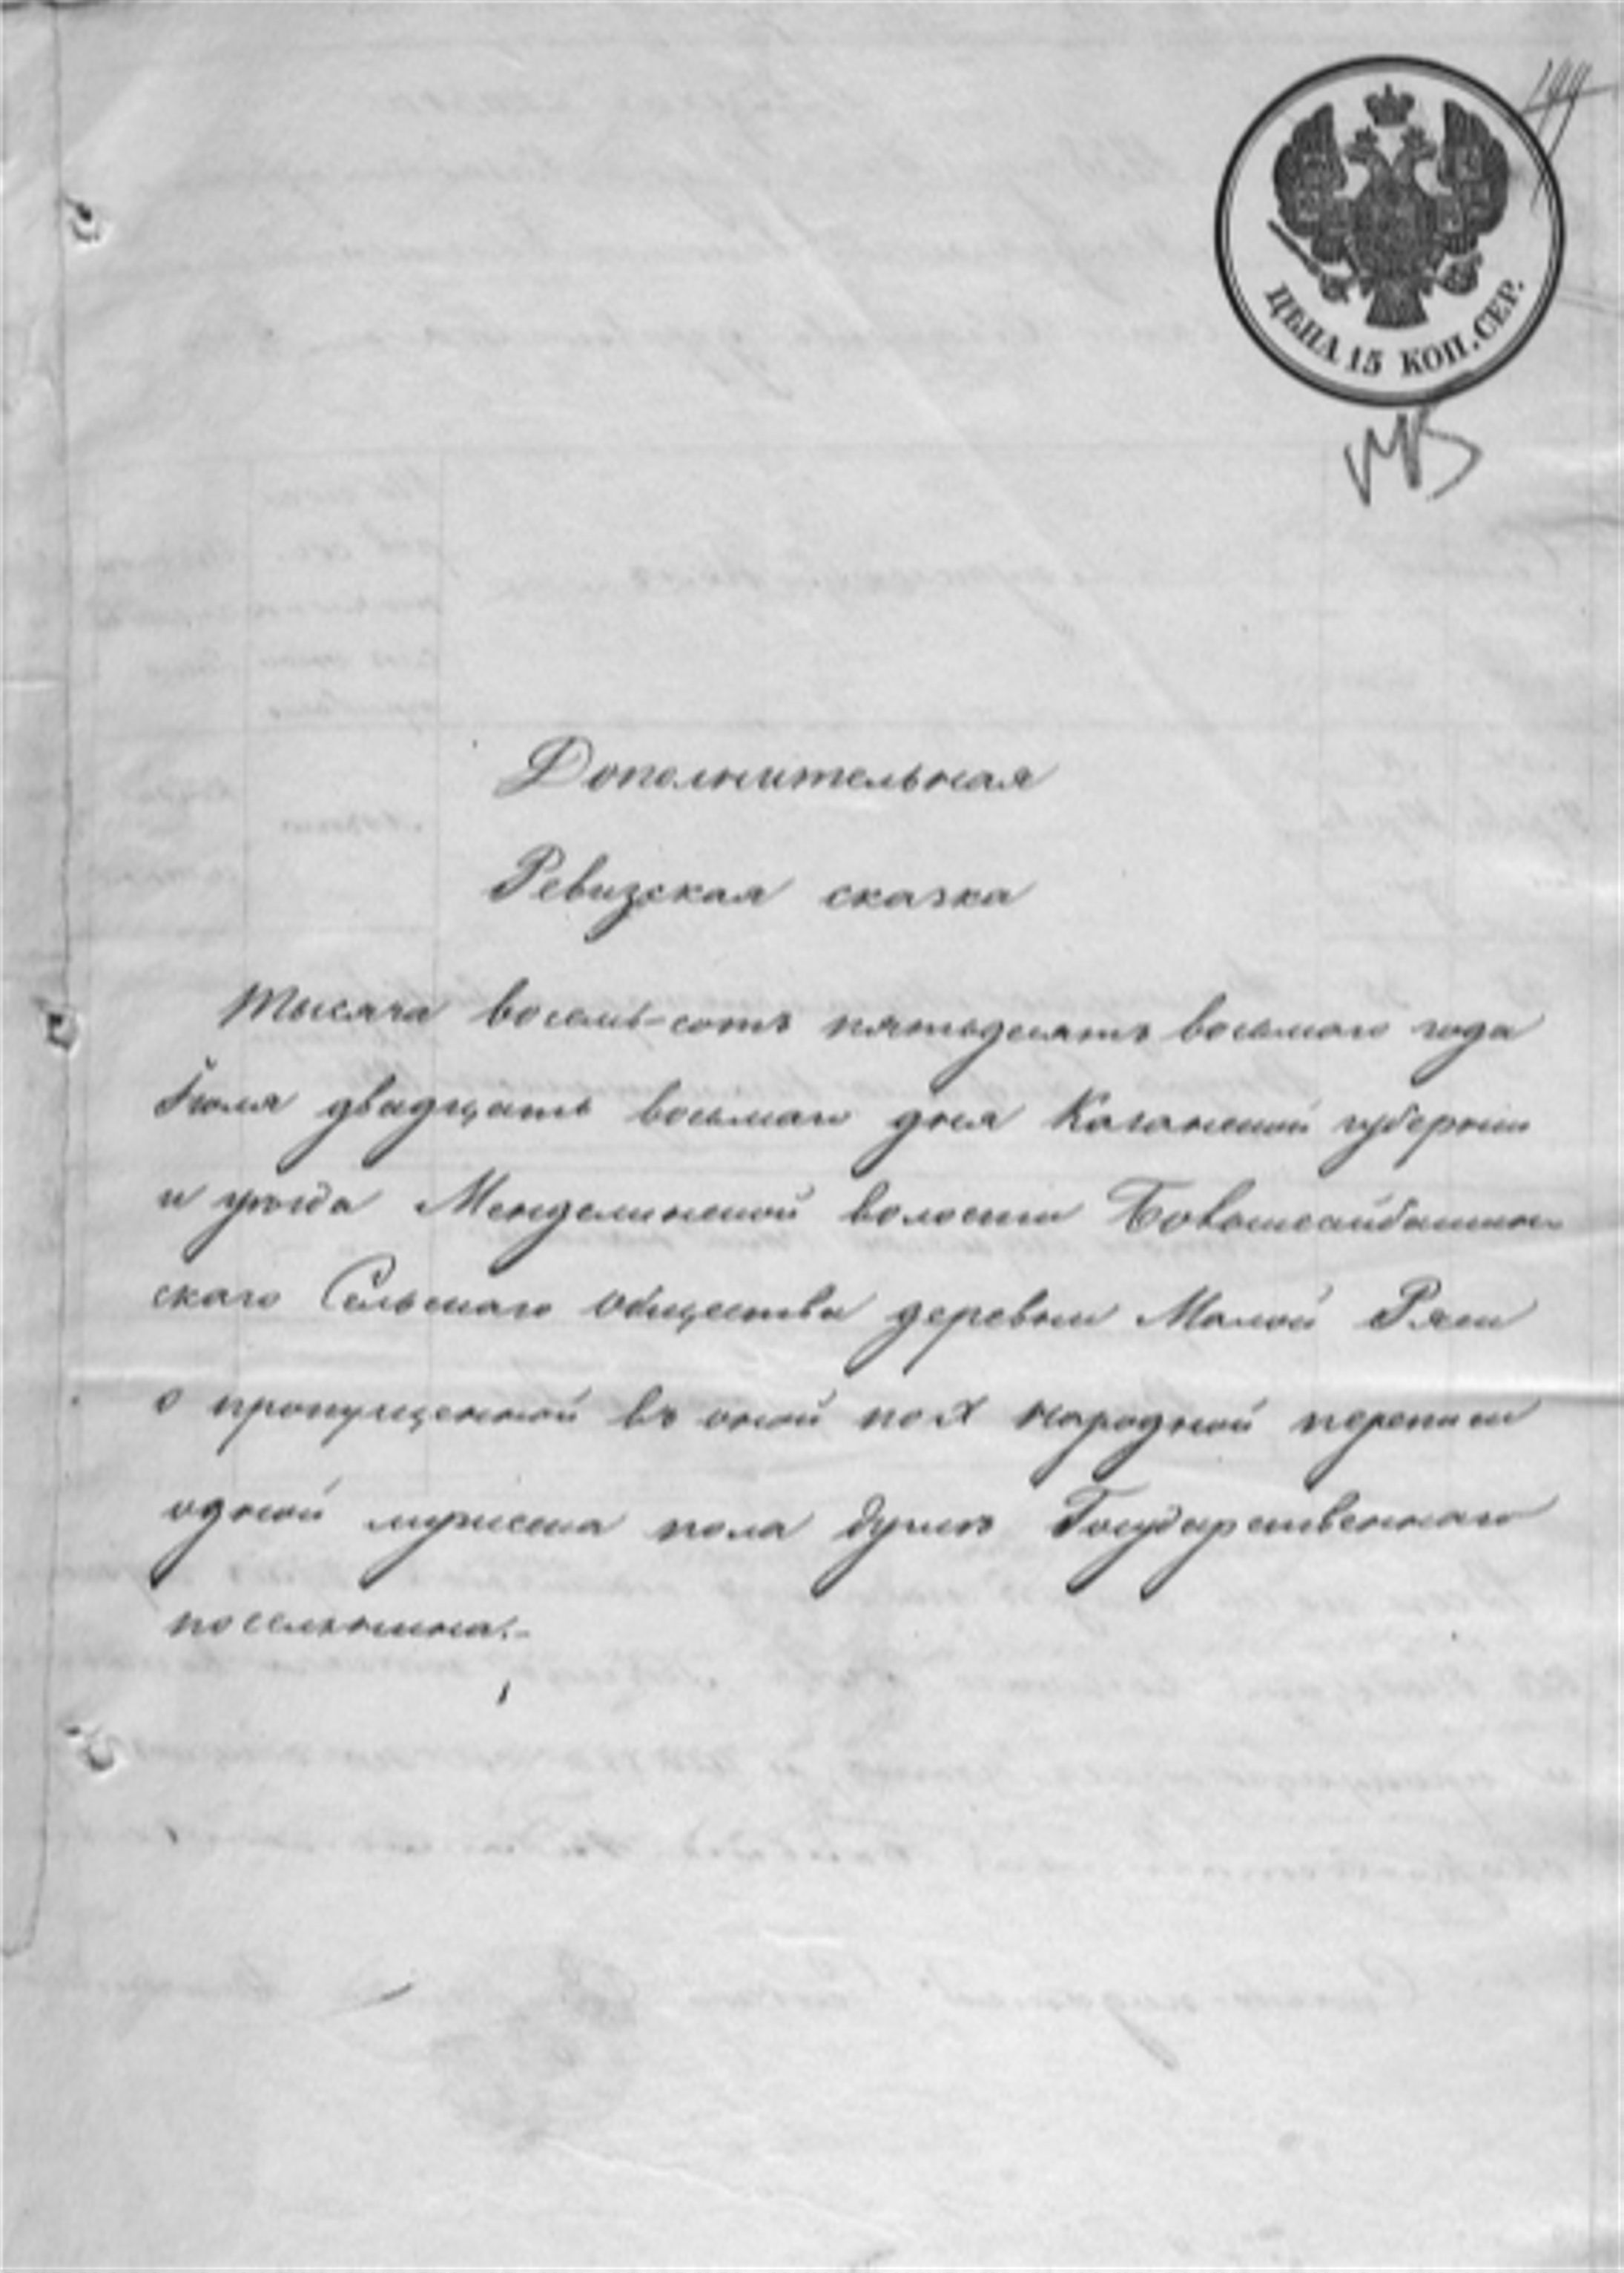 ЦѢНА 15 КОП. СЕР.
Дополнительная
Ревизская сказка
Тысяча восемь-сотъ пятьдесятъ восьмаго года
Іюля двадцать восьмаго дня Казанской губерніи
и уѣзда Менделинской волости
скаго Сельскаго общества деревни Малой Ряси
о пропущенной въ оной по X народной переписи
одной мужеска пола душѣ Государственнаго
поселянина.-